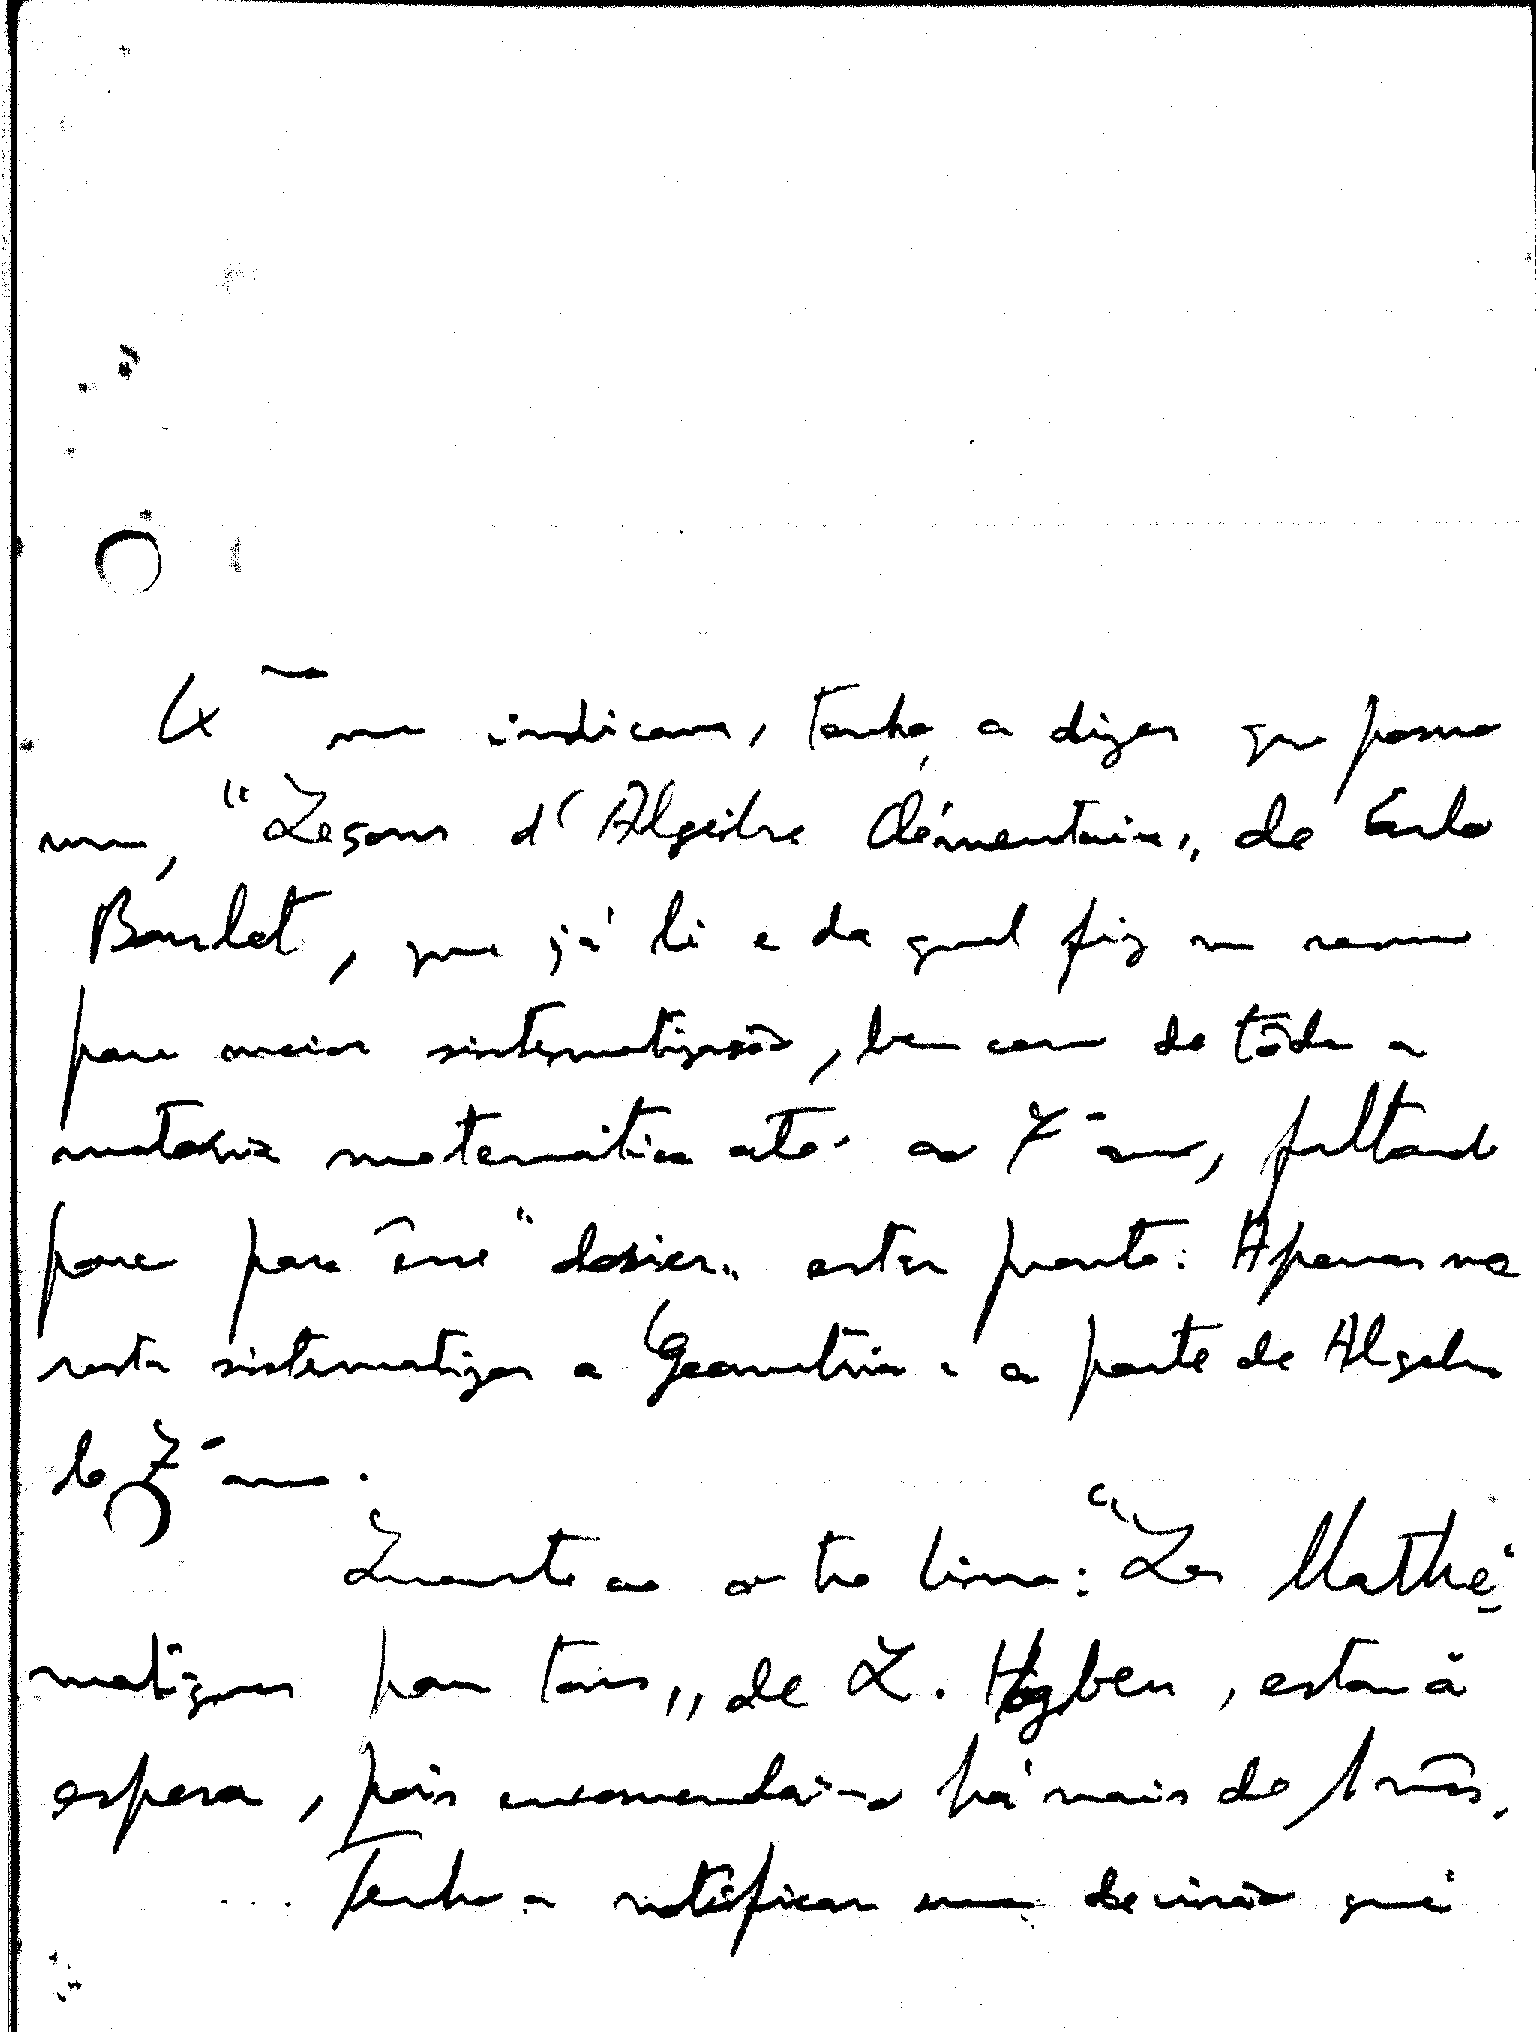 me indicam, tenho a dizer que possuo
um, "Leçons d'Algèbre Élémentaire„ de Carlo
Bourlet, que já li e da qual fiz um resumo
para maior sistematização, bem como de tôda a
matéria matemática até ao 7º ano, faltando
pouco para êsse "dossier„ estar pronto. Apenas me
resta sistematizar a Geometria e a parte de Algebra
do 7º ano.
Quanto ao outro livro: "Les Mathé-
matiques pour tous„ de L. Hogben, estou à
espera, pois encomendei-o há mais de 1 mês.
... Tenho a notificar uma decisão que